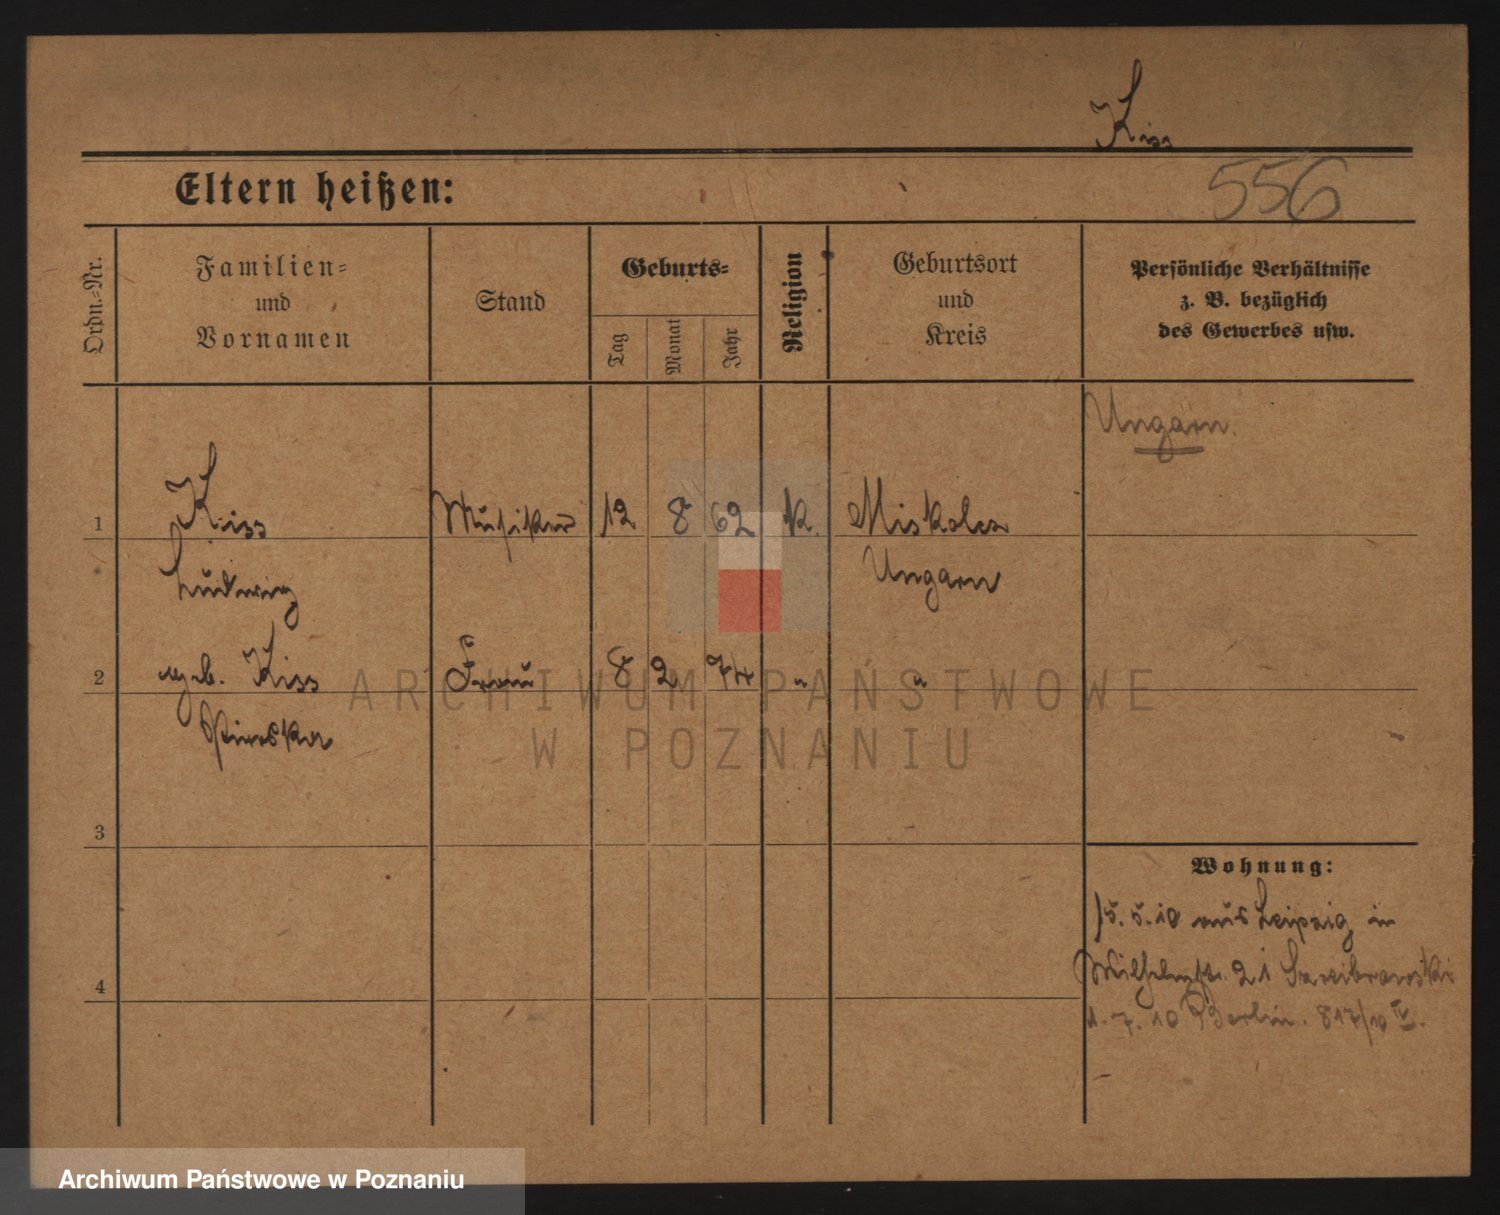 Kiss
Eltern heißen:
556
Ordn.-Nr.
Familien-
und
Vornamen
Stand
Geburts-
Tag
Monat
Jahr
Religion
Geburtsort
und
Kreis
Persönliche Verhältnisse
z. B. bezüglich
des Gewerbes usw.
Ungarn.
1 Kiss Musiker 12 8 62 k. Miskolcz
Ludwig Ungarn
2 geb. Kiss Frau 8 2 74 " "
Piroska
3
4
Wohnung:
15. 5. 10 aus Leipzig in
Wilhelmstr. 21
1. 7. 10 Berlin. 817/10 IV.
ARCHIWUM PAŃSTWOWE
W POZNANIU
Archiwum Państwowe w Poznaniu